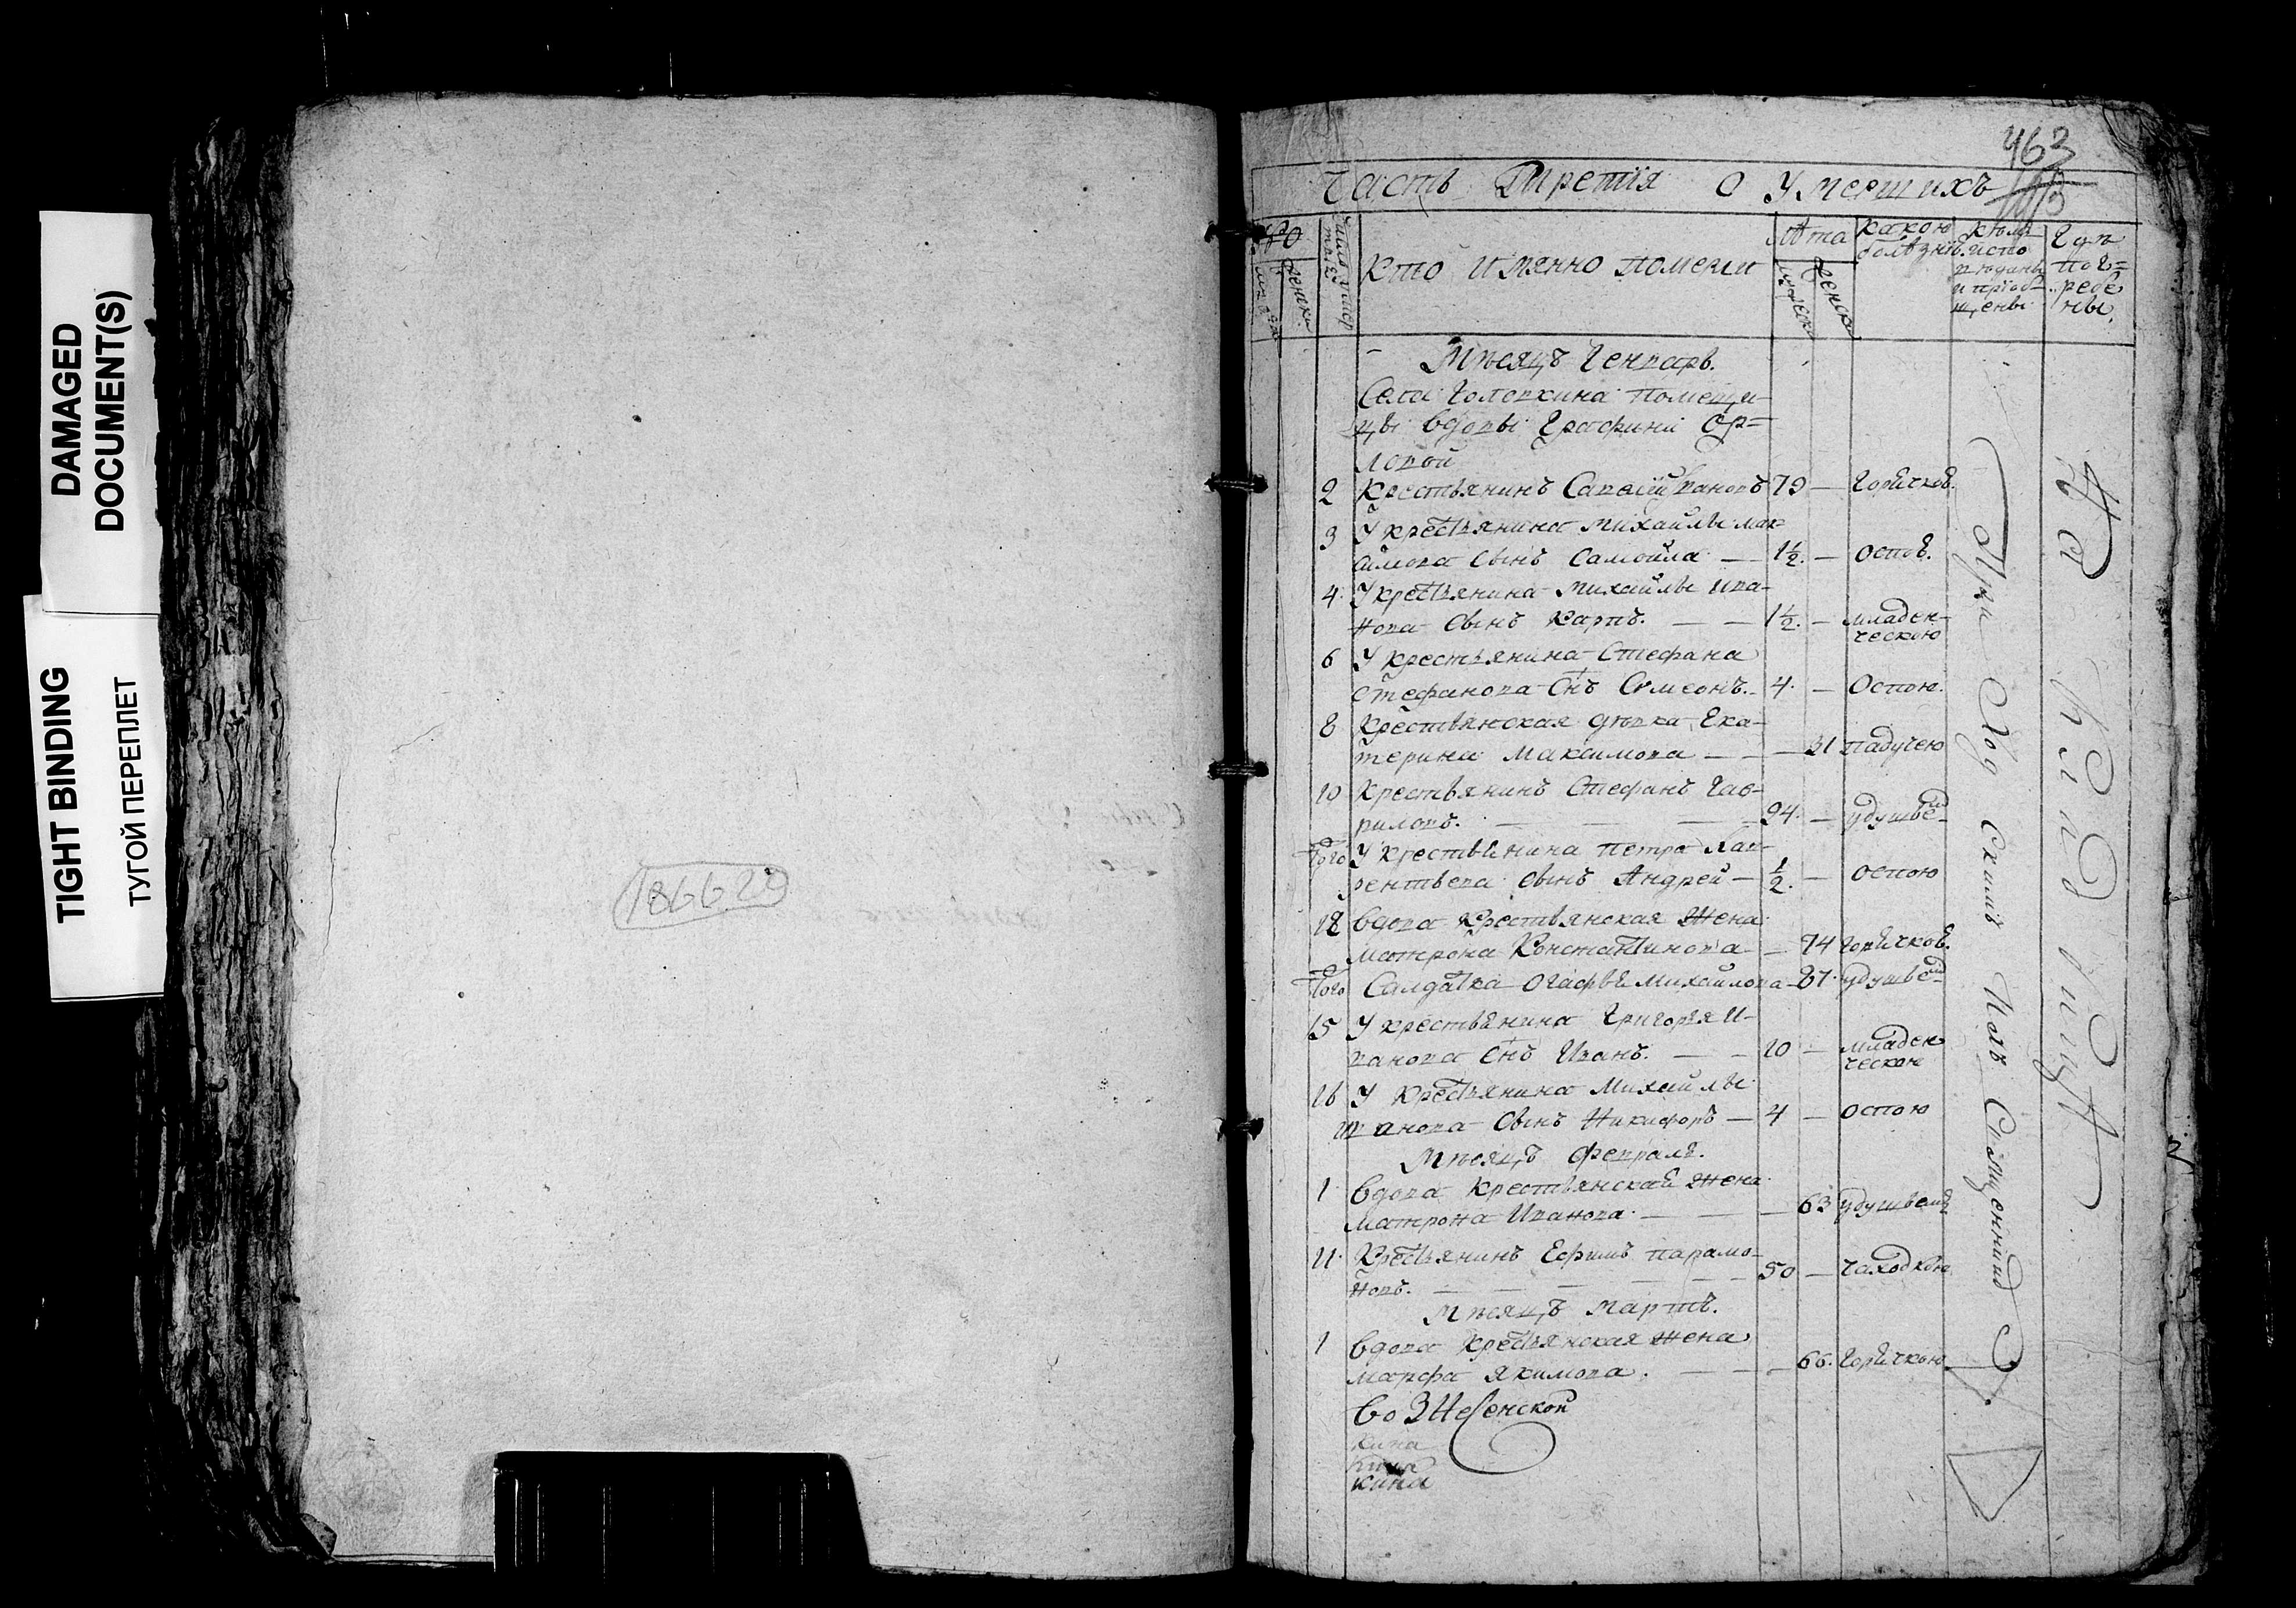 DAMAGED
DOCUMENT(S)
TIGHT BINDING
ТУГОЙ ПЕРЕПЛЕТ
186629
463
Часть Третія о умершихъ
Кто имянно померли
Лѣта
какою
болѣзнію
кѣмъ
испо
вѣданы
и пріоб-
щены
Гдѣ
погре
бены
женска
Мѣсяцъ Генварь.
Села Головкина помещи-
цы вдовы Графини Ор=
ловой
2 Крестьянинъ Савелій Ивановъ 79 — Горячкою.
3 У крестьянина Михайлы мак-
симова сынъ Самойла — 1½. — оспою.
4. У крестьянина Михайлы Ива-
нова сынъ Карпъ. — — 1½. — младен-
ческою
6 У крестьянина Стефана
Стефанова Снъ Симеонъ. 4. — Оспою.
8 Крестьянская дѣвка Ека-
терина Максимова — — — 31 падучею
10 Крестьянинъ Стефанъ Гав-
риловъ. — — — 24. — удушьем
Того У крестьянина Петра Лав-
рентьева сынъ Андрей — ½. — оспою
12 Вдова Крестьянская Жена
Матрона Константинова — — 74 горячкою.
Того Салдатка Огафья Михайлова — 67. удушьем
15 У крестьянина Григорья И-
ванова Снъ Иванъ. — — 10 — младен
ческою
16 У Крестьянина Михайлы
Иванова Сынъ Никифоръ — 4 — оспою
Мѣсяцъ Февраль.
1. Вдова Крестьянская Жена
Матрона Иванова. — — — 63 удушьем
11. Крестьянинъ Ефимъ парамо-
новъ. — — — 50 — чахоткою
Мѣсяцъ Мартъ.
1 Вдова Крестьянская жена
Марфа Якимова. — — — 66. Горячкою
Вознесенской
кина
кина
При ход ским
Священникъ
На